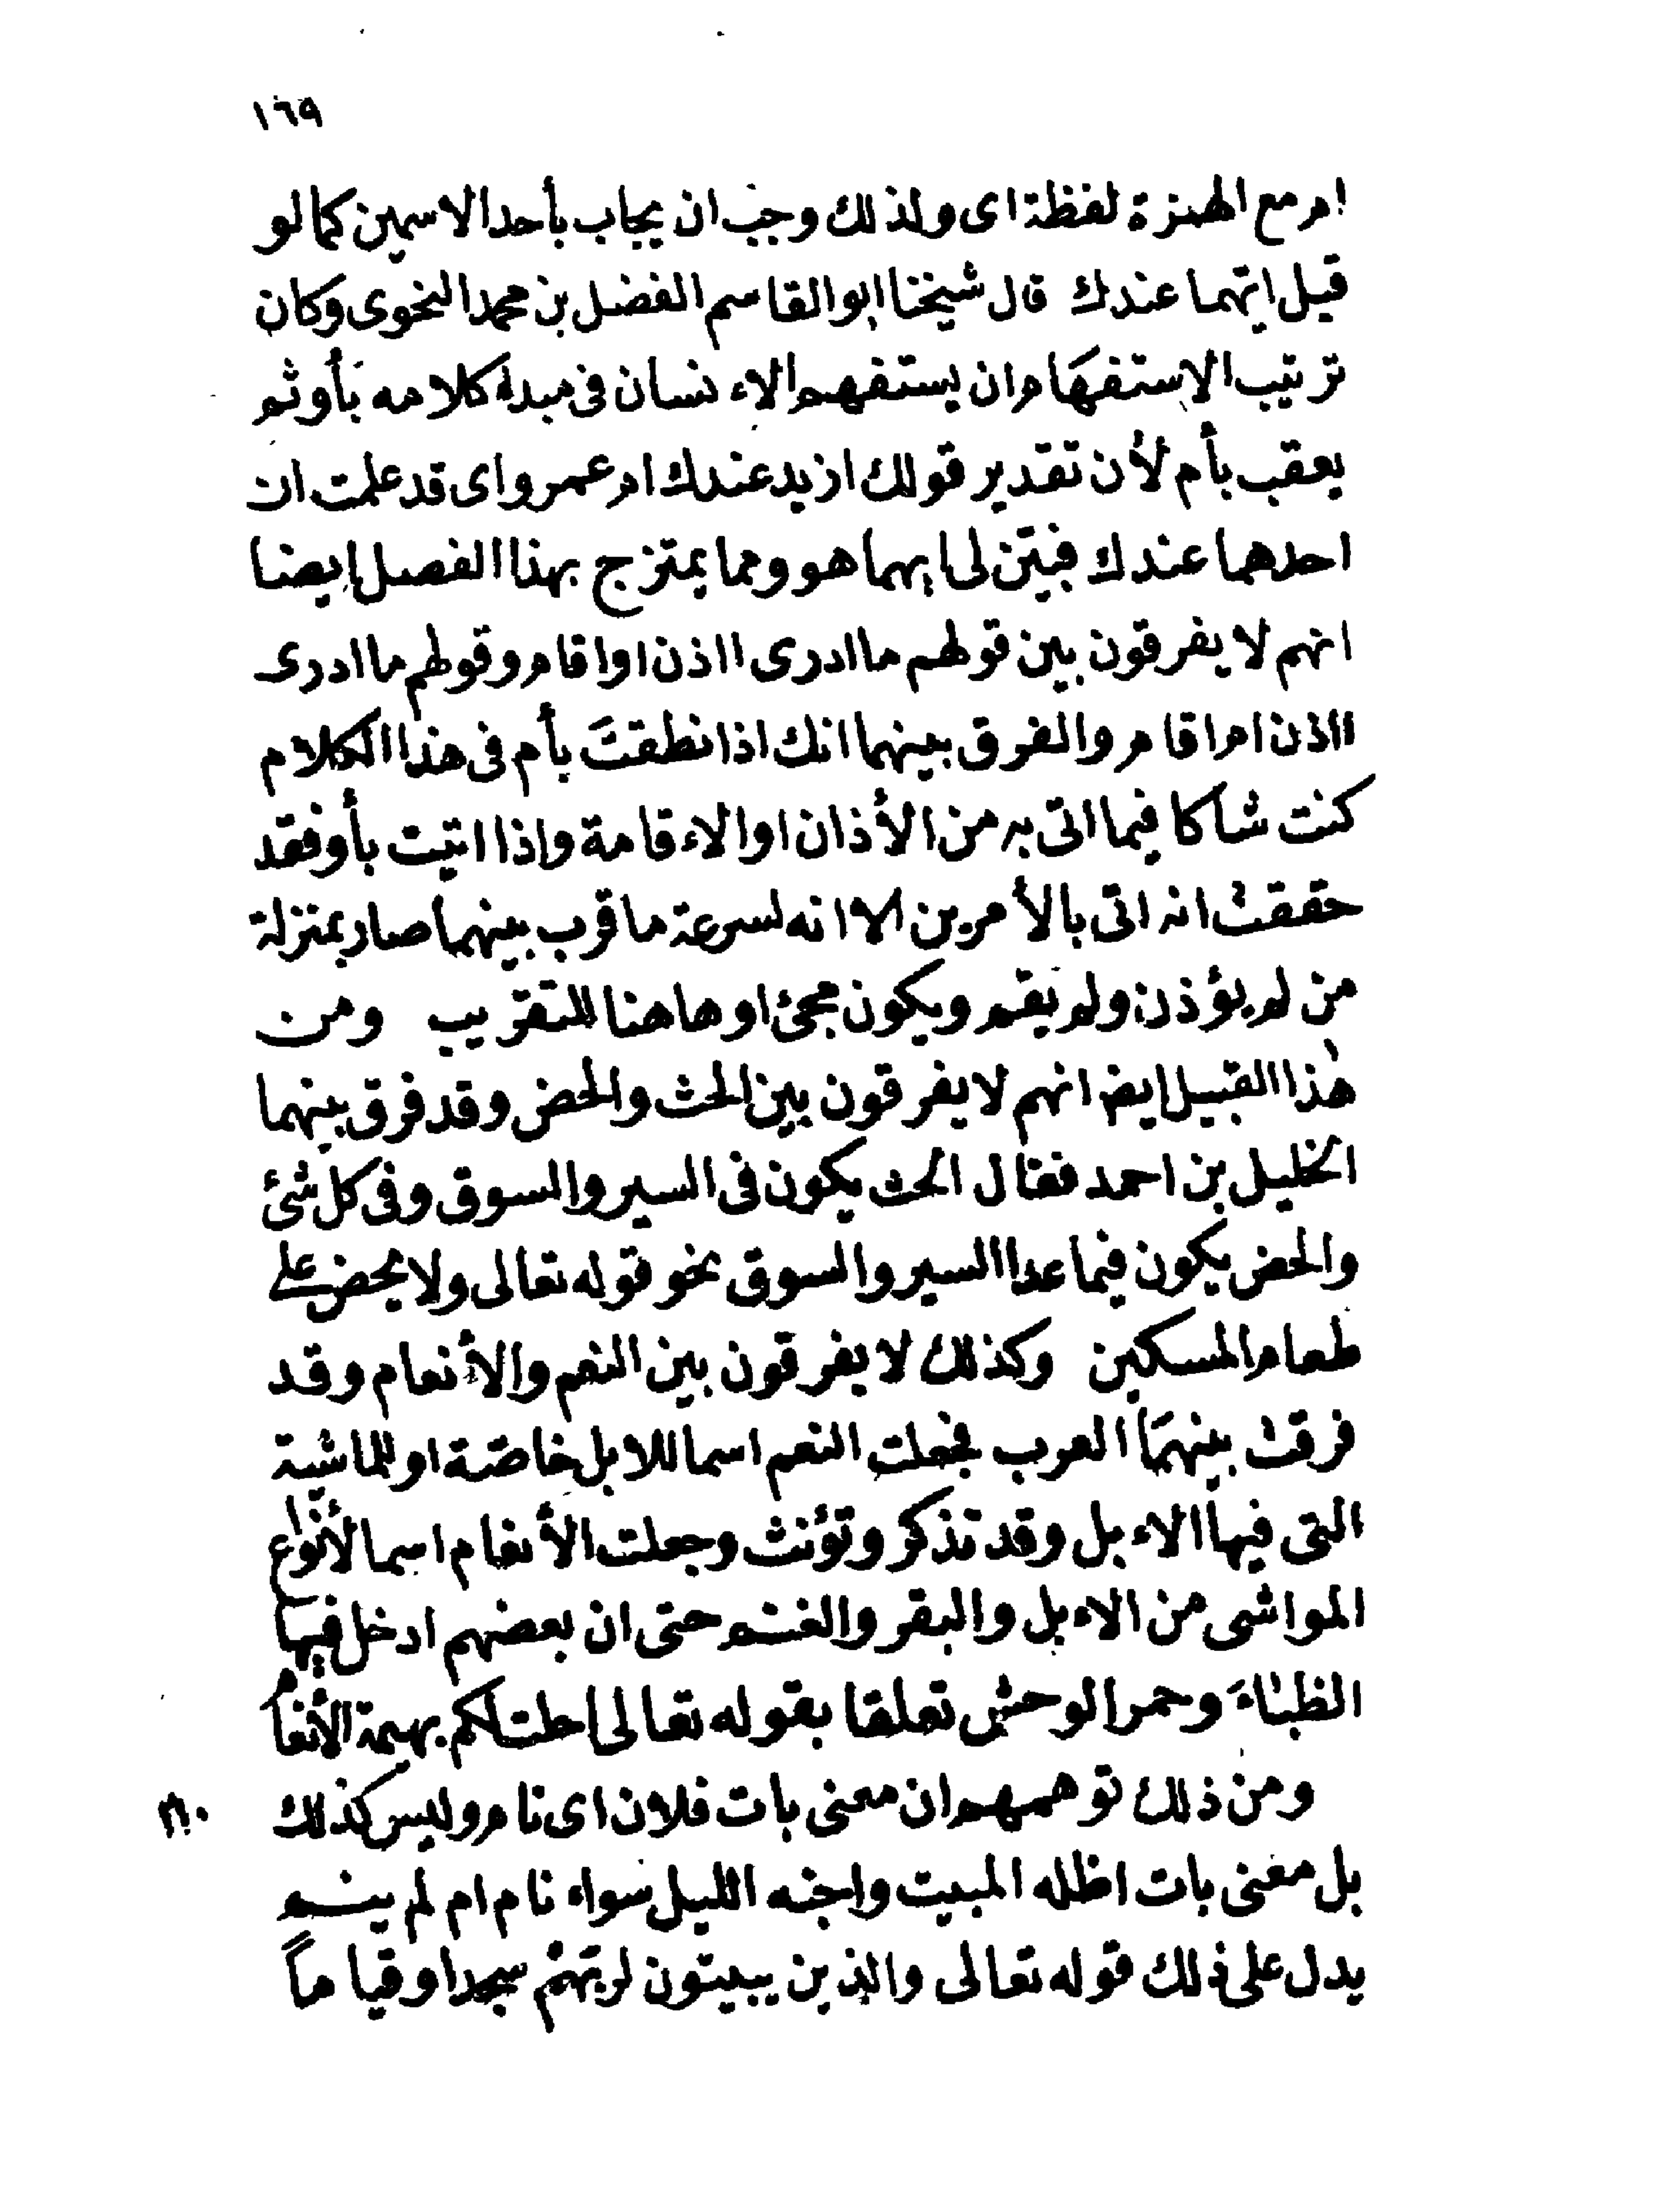 ١٦٩
ام مع الهمزة لفظة اى ولذلك وجب ان يجاب بأحد الاسمين كما لو
قيل ايّهما عندك قال شيخنا ابو القاسم الفضل بن محمد النحوى وكان
ترتيب الاستفهَام ان يستفهم الاءنسان فى مبدء كلامه بَأو ثم
يعقب بأم لأن تقدير قولك ازيد عندك ام عمرو اى قد علمت ان
احدهما عندك فبيّن لى ايهما هو ومما يمتزج بهذا الفصل ايضا
انهم لا يفرقون بين قولهم ما ادرى ااذن او اقام وقولهم ما ادرى
ااذن ام اقام والفرق بينهما انك اذا نطقتَ بأم فى هذا الكلام
كنت شاكا فيما اتى به من الأذان او الاءقامة واذا اتيت بأو فقد
حققت انه اتى بالأمرين الا انه لسرعة ما قرب بينهما صار بمنزلة
من لم يؤذن ولم يقم ويكون مجئ او هاهنا للتقريب ومن
هٰذا القبيل ايض انهم لا يفرقون بين الحث والحض وقد فرق بينهما
الخليل بن احمد فقال الحث يكون فى السير والسوق وفى كل شئ
والحض يكون فيما عدا السير والسوق نحو قوله تعالى ولا يحض على
طعام المسكين وكذلك لا يفرقون بين النعم والأنعام وقد
فرقت بينهمَا العرب فجعلت النعم اسما للابل خاصّة او للماشية
التى فيها الاءبل وقد تذكر وتؤنث وجعلت الأنعام اسما لأنواع
المواشى من الاءبل والبقر والغنم حتى ان بعضهم ادخل فيهَا
الظبَاءَ وحمر الوحش تعلقا بقوله تعالى احلت لكم بهيمة الأنعام
ومن ذلك توهمهم ان معنى بات فلان اى نام وليس كذلك
بل معنى بات اظله المبيت واجنه الليل سواء نام ام لم ينم
يدل على ذلك قوله تعالى والذين يبيتون لربّهمْ سجدا وقياماً